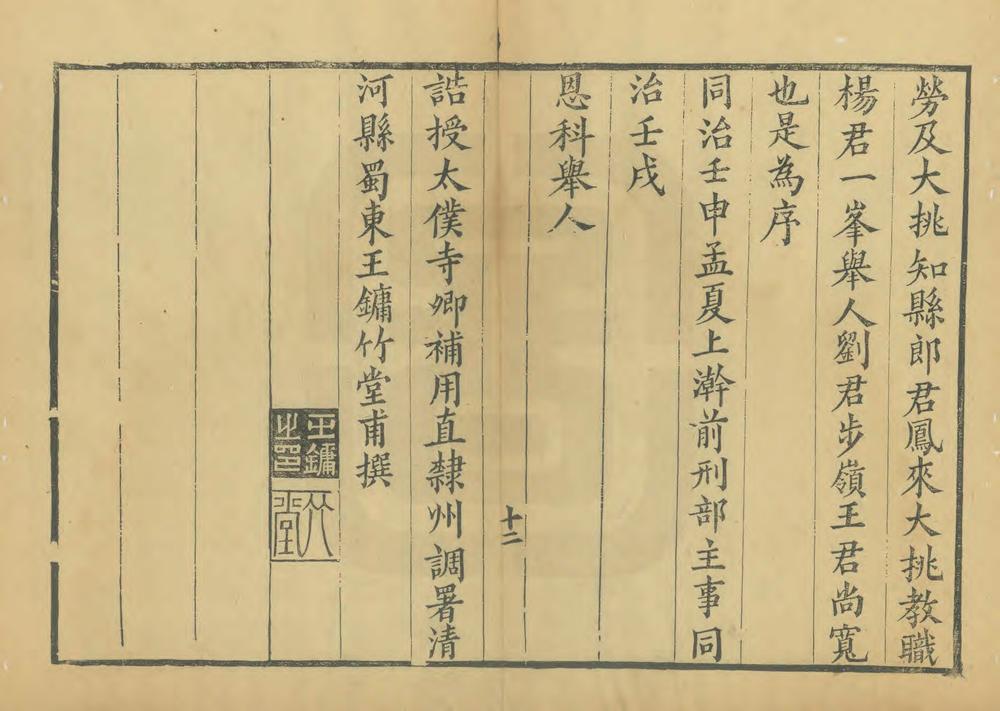 勞及大挑知縣郎君鳳來大挑教職
楊君一峯舉人劉君步嶺王君尚寬
也是為序
同治壬申孟夏上澣前刑部主事同
治壬戌
恩科舉人
十二
誥授太僕寺卿補用直隸州調署清
河縣蜀東王鏞竹堂甫撰
王鏞
之印
竹
堂